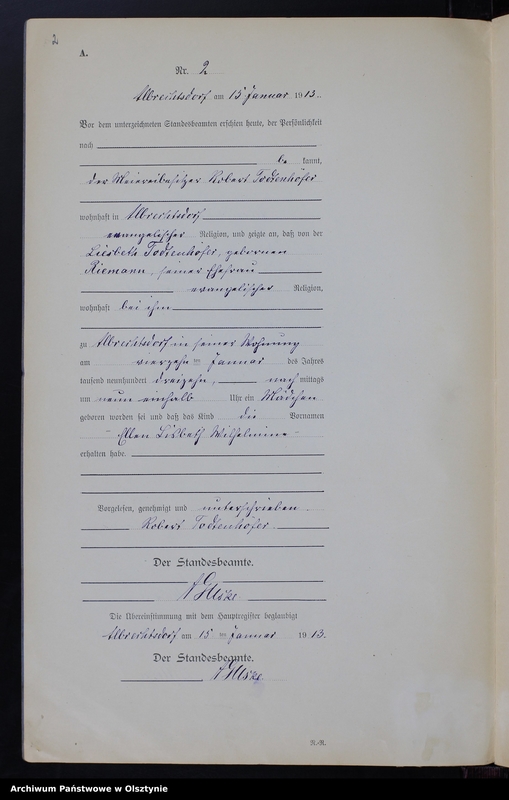 2
A.
Nr. 2
Albrechtsdorf am 15 Januar 1913.
Vor dem unterzeichneten Standesbeamten erschien heute, der Persönlichkeit
nach
be kannt,
der Meiereibesitzer Robert Todtenhöfer
wohnhaft in Albrechtsdorf
evangelischer Religion, und zeigte an, daß von der
Lisbeth Todtenhöfer, gebornen
Riemann, seiner Ehefrau
evangelischer Religion,
wohnhaft bei ihm
zu Albrechtsdorf in seiner Wohnung
am vierzehn ten Januar des Jahres
tausend neunhundert dreizehn, nach mittags
um neun einhalb Uhr ein Mädchen
geboren worden sei und daß das Kind die Vornamen
Ellen Lisbeth Wilhelmine
erhalten habe.
Vorgelesen, genehmigt und unterschrieben
Robert Todtenhöfer.
Der Standesbeamte.
Die Übereinstimmung mit dem Hauptregister beglaubigt
Albrechtsdorf am 15 ten Januar 1913.
Der Standesbeamte.
N.-R.
Archiwum Państwowe w Olsztynie